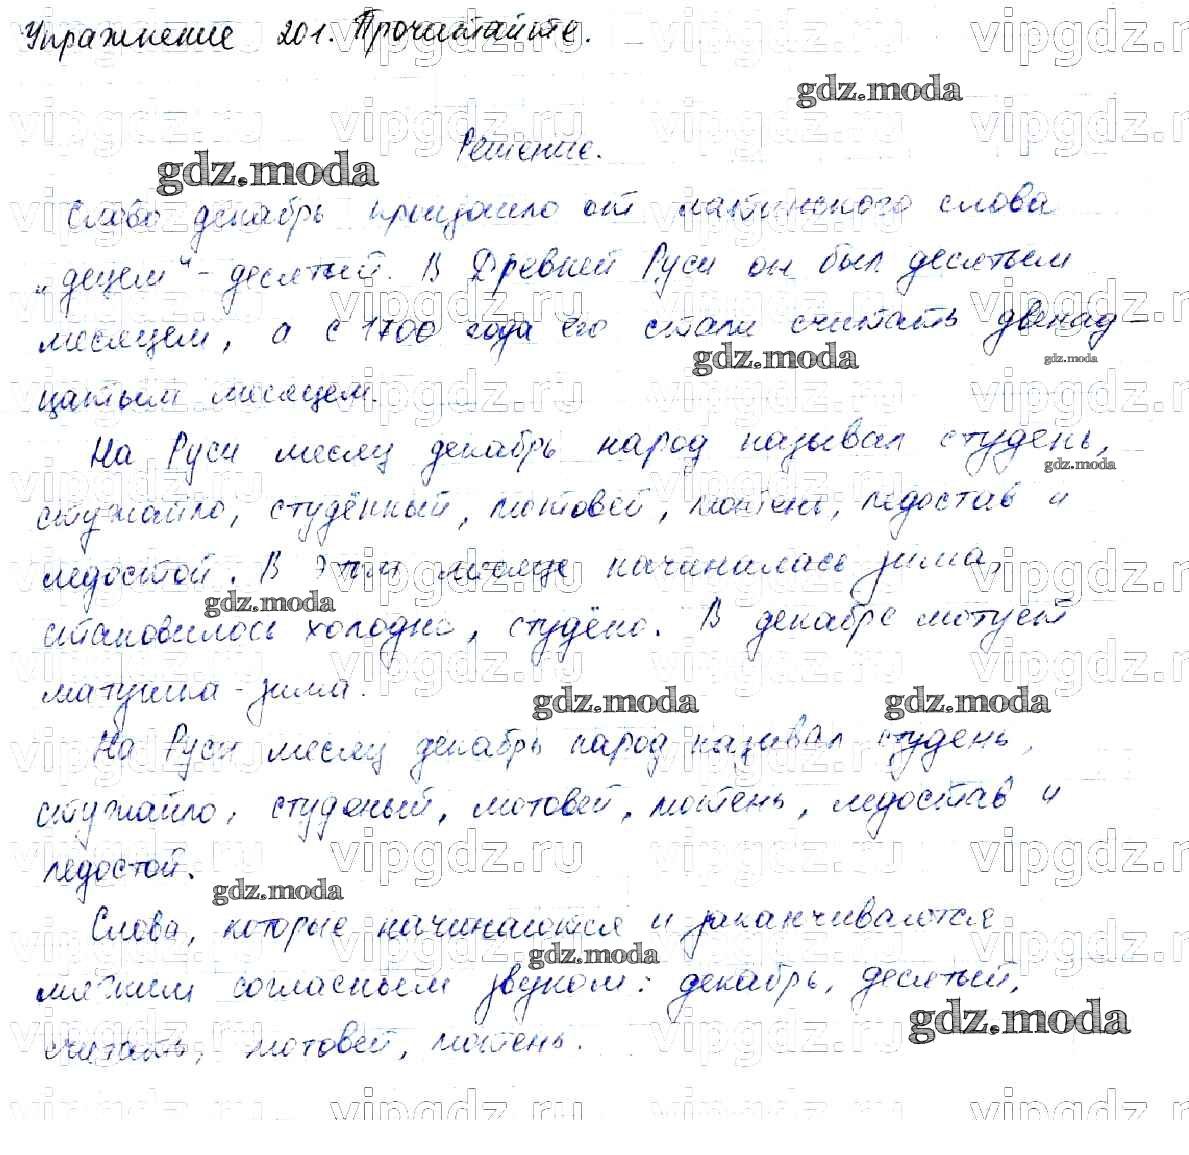 Упражнение 201. Прочитайте.
gdz.moda
Решение.
gdz.moda
Слово декабрь произошло от латинского слова
„децем" - десятый. В Древней Руси он был десятым
месяцем, а с 1700 года его стали считать двенад-
gdz.moda
gdz.moda
цатым месяцем.
На Руси месяц декабрь народ называл студень,
gdz.moda
стужайло, студённый, лютовей, лютень, ледостав и
ледостой. В этом месяце начиналась зима,
gdz.moda
становилось холодно, студёно. В декабре лютует
матушка - зима.
gdz.moda gdz.moda
На Руси месяц декабрь народ называл студень,
стужайло, студёный, лютовей, лютень, ледостав и
ледостой.
gdz.moda
Слова, которые начинаются и заканчиваются
gdz.moda
мягким согласным звуком: декабрь, десятый,
gdz.moda
считать, лютовей, лютень.
vipgdz.ru